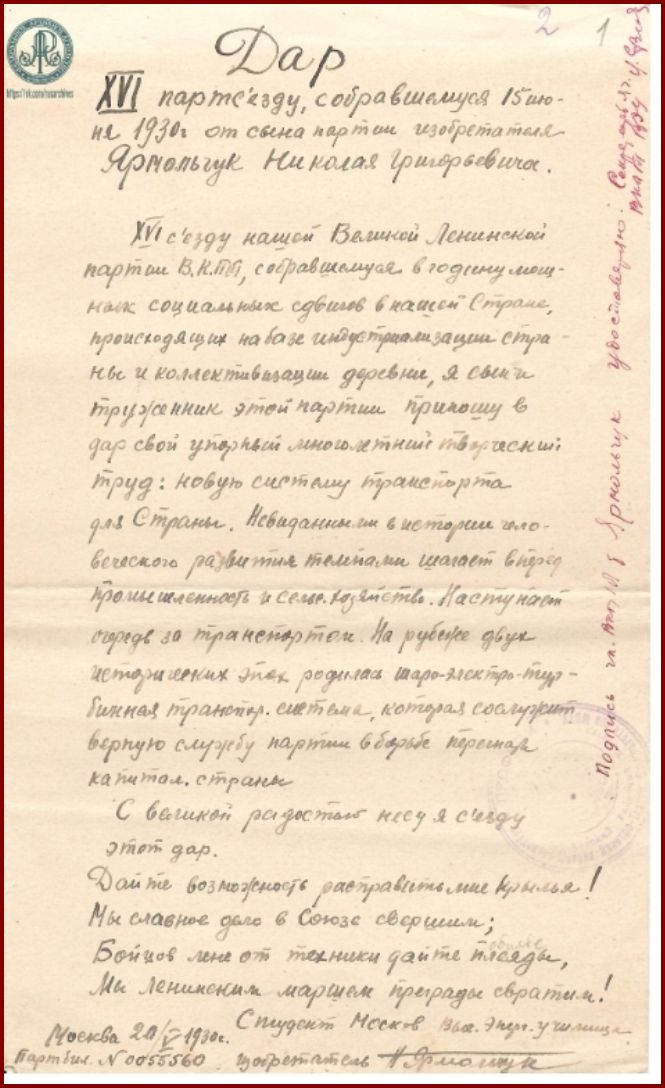 https://vk.com/rusarchives
2
1
Дар
XVI партс'езду, собравшемуся 15 ию-
ня 1930г от сына партии изобретателя
Ярмольчук Николая Григорьевича.
XVI с'езду нашей Великой Ленинской
партии В.К.П.б, собравшемуся в годину мощ-
ных социальных сдвигов в нашей Стране,
происходящих на базе индустриализации стра-
ны и коллективизации деревни, я сын и
труженник этой партии приношу в
дар свой упорный многолетний творческий
труд: новую систему транспорта
для Страны. Невиданными в истории чело-
веческого развития темпами шагает вперед
промышленность и сельс. хозяйство. Наступает
очередь за транспортом. На рубеже двух
исторических эпох родилась шаро-электро-тур-
бинная транспор. система, которая сослужит
верную службу партии в борьбе перегнать
капитал. страны
С великой радостью несу я с'езду
этот дар.
Дайте возможность расправить мне крылья!
Мы славное дело в Союзе свершим;
Бойцов мне от техники дайте плеяды,
Мы Ленинским маршем преграды свратим!
Студент Москов Выс. Энер. училища
Москва 20/V 1930г.
Партбил. N 0055560 изобретатель НЯрмольчук
Подпись чл. ВКП б Ярмольчук удостоверяю: